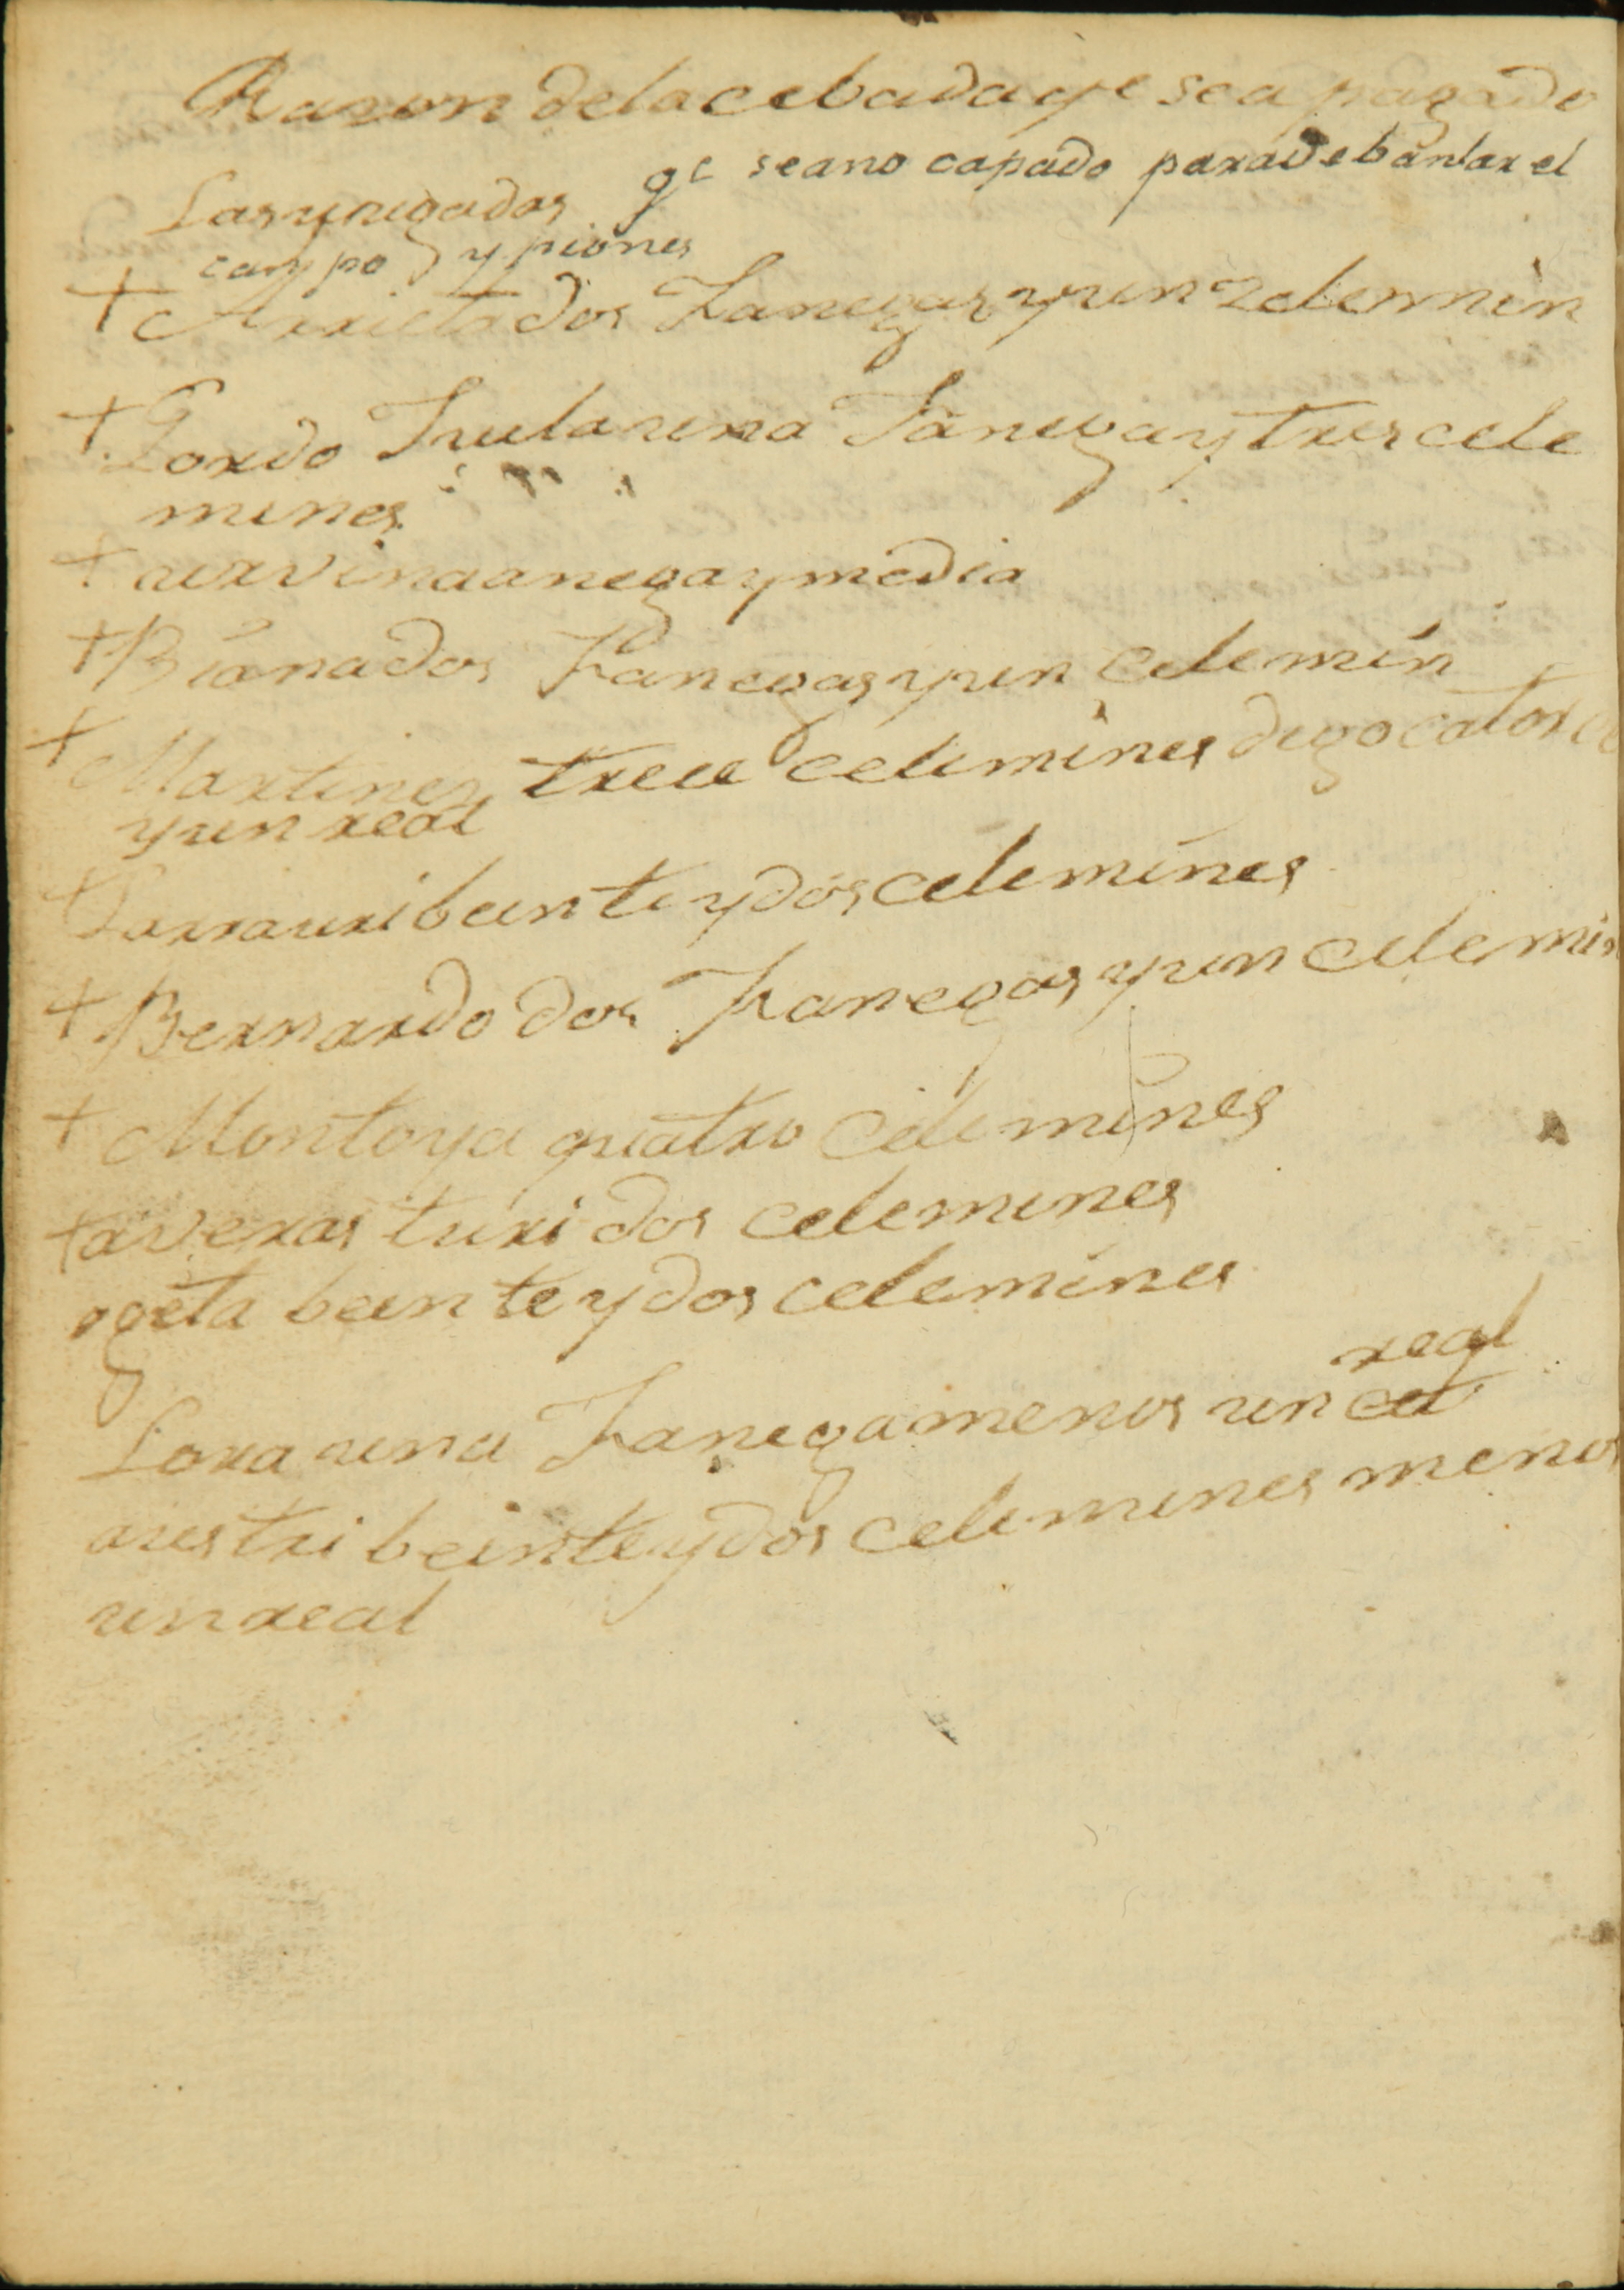 Razon dela cebada qe sea pagado
Las yugadas qe seano capado para debantar el
campo y piones
+ Arrieta dos Fanegas y un zelemin
+ Gordo Irula una Fanega y tres cele
mines
+ urvina anega y media
+ Biana dos Fanegas y un celemin
+ Martinez trece celemines digo catorce
y un real
+ Larrauri beinte y dos celemines
+ Bernardo dos Fanegas y un celemin
+ Montoya quatro celemines
+ averasturi dos celemines
ogeta beinte y dos celemines
real
Lora una Fanega menos un cel
arestri beinte y dos celemines menos
un real